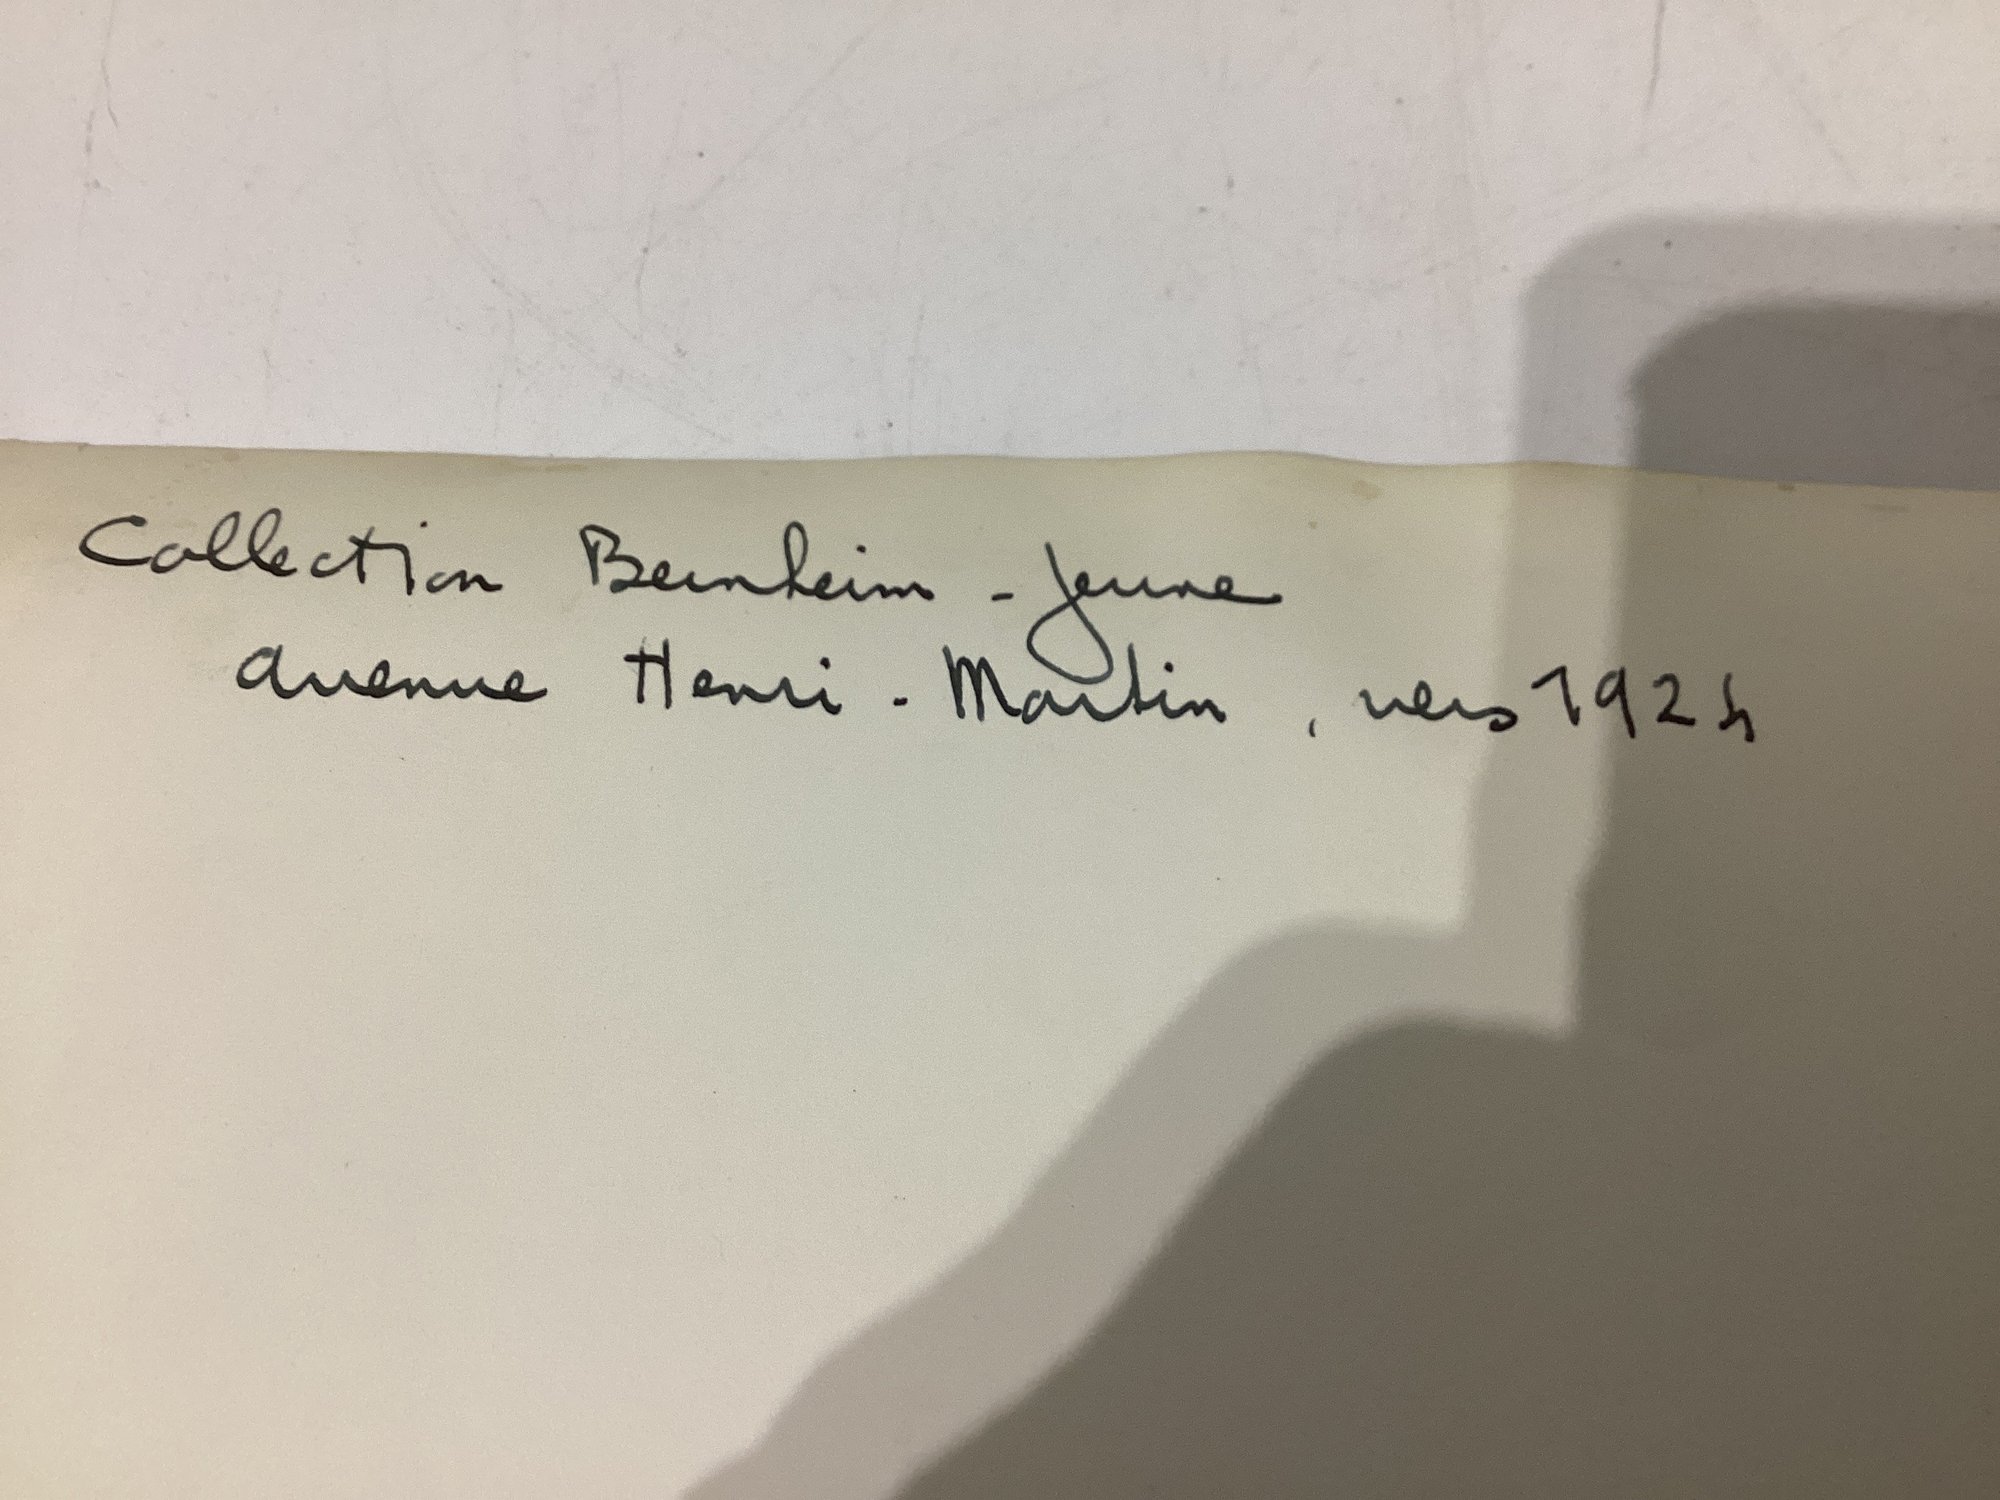 Collection Bernheim - Jeune
avenue Henri - Martin, vers 1924